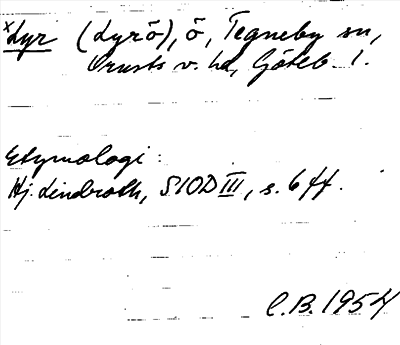 ×Lyr (Lyrö), ö, Tegneby sn,
Orusts v. hd, Göteb. l.
Etymologi:
Hj. Lindroth, SIOD III, s. 6 ff.
C.B. 1954